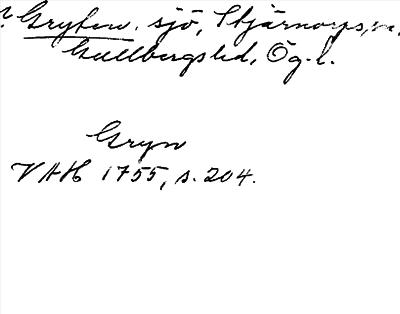 Gryten. sjö, Stjärnorps, sn,
Gullbergs hd, Ög. l.
Gryn
VAH 1755, s. 204.